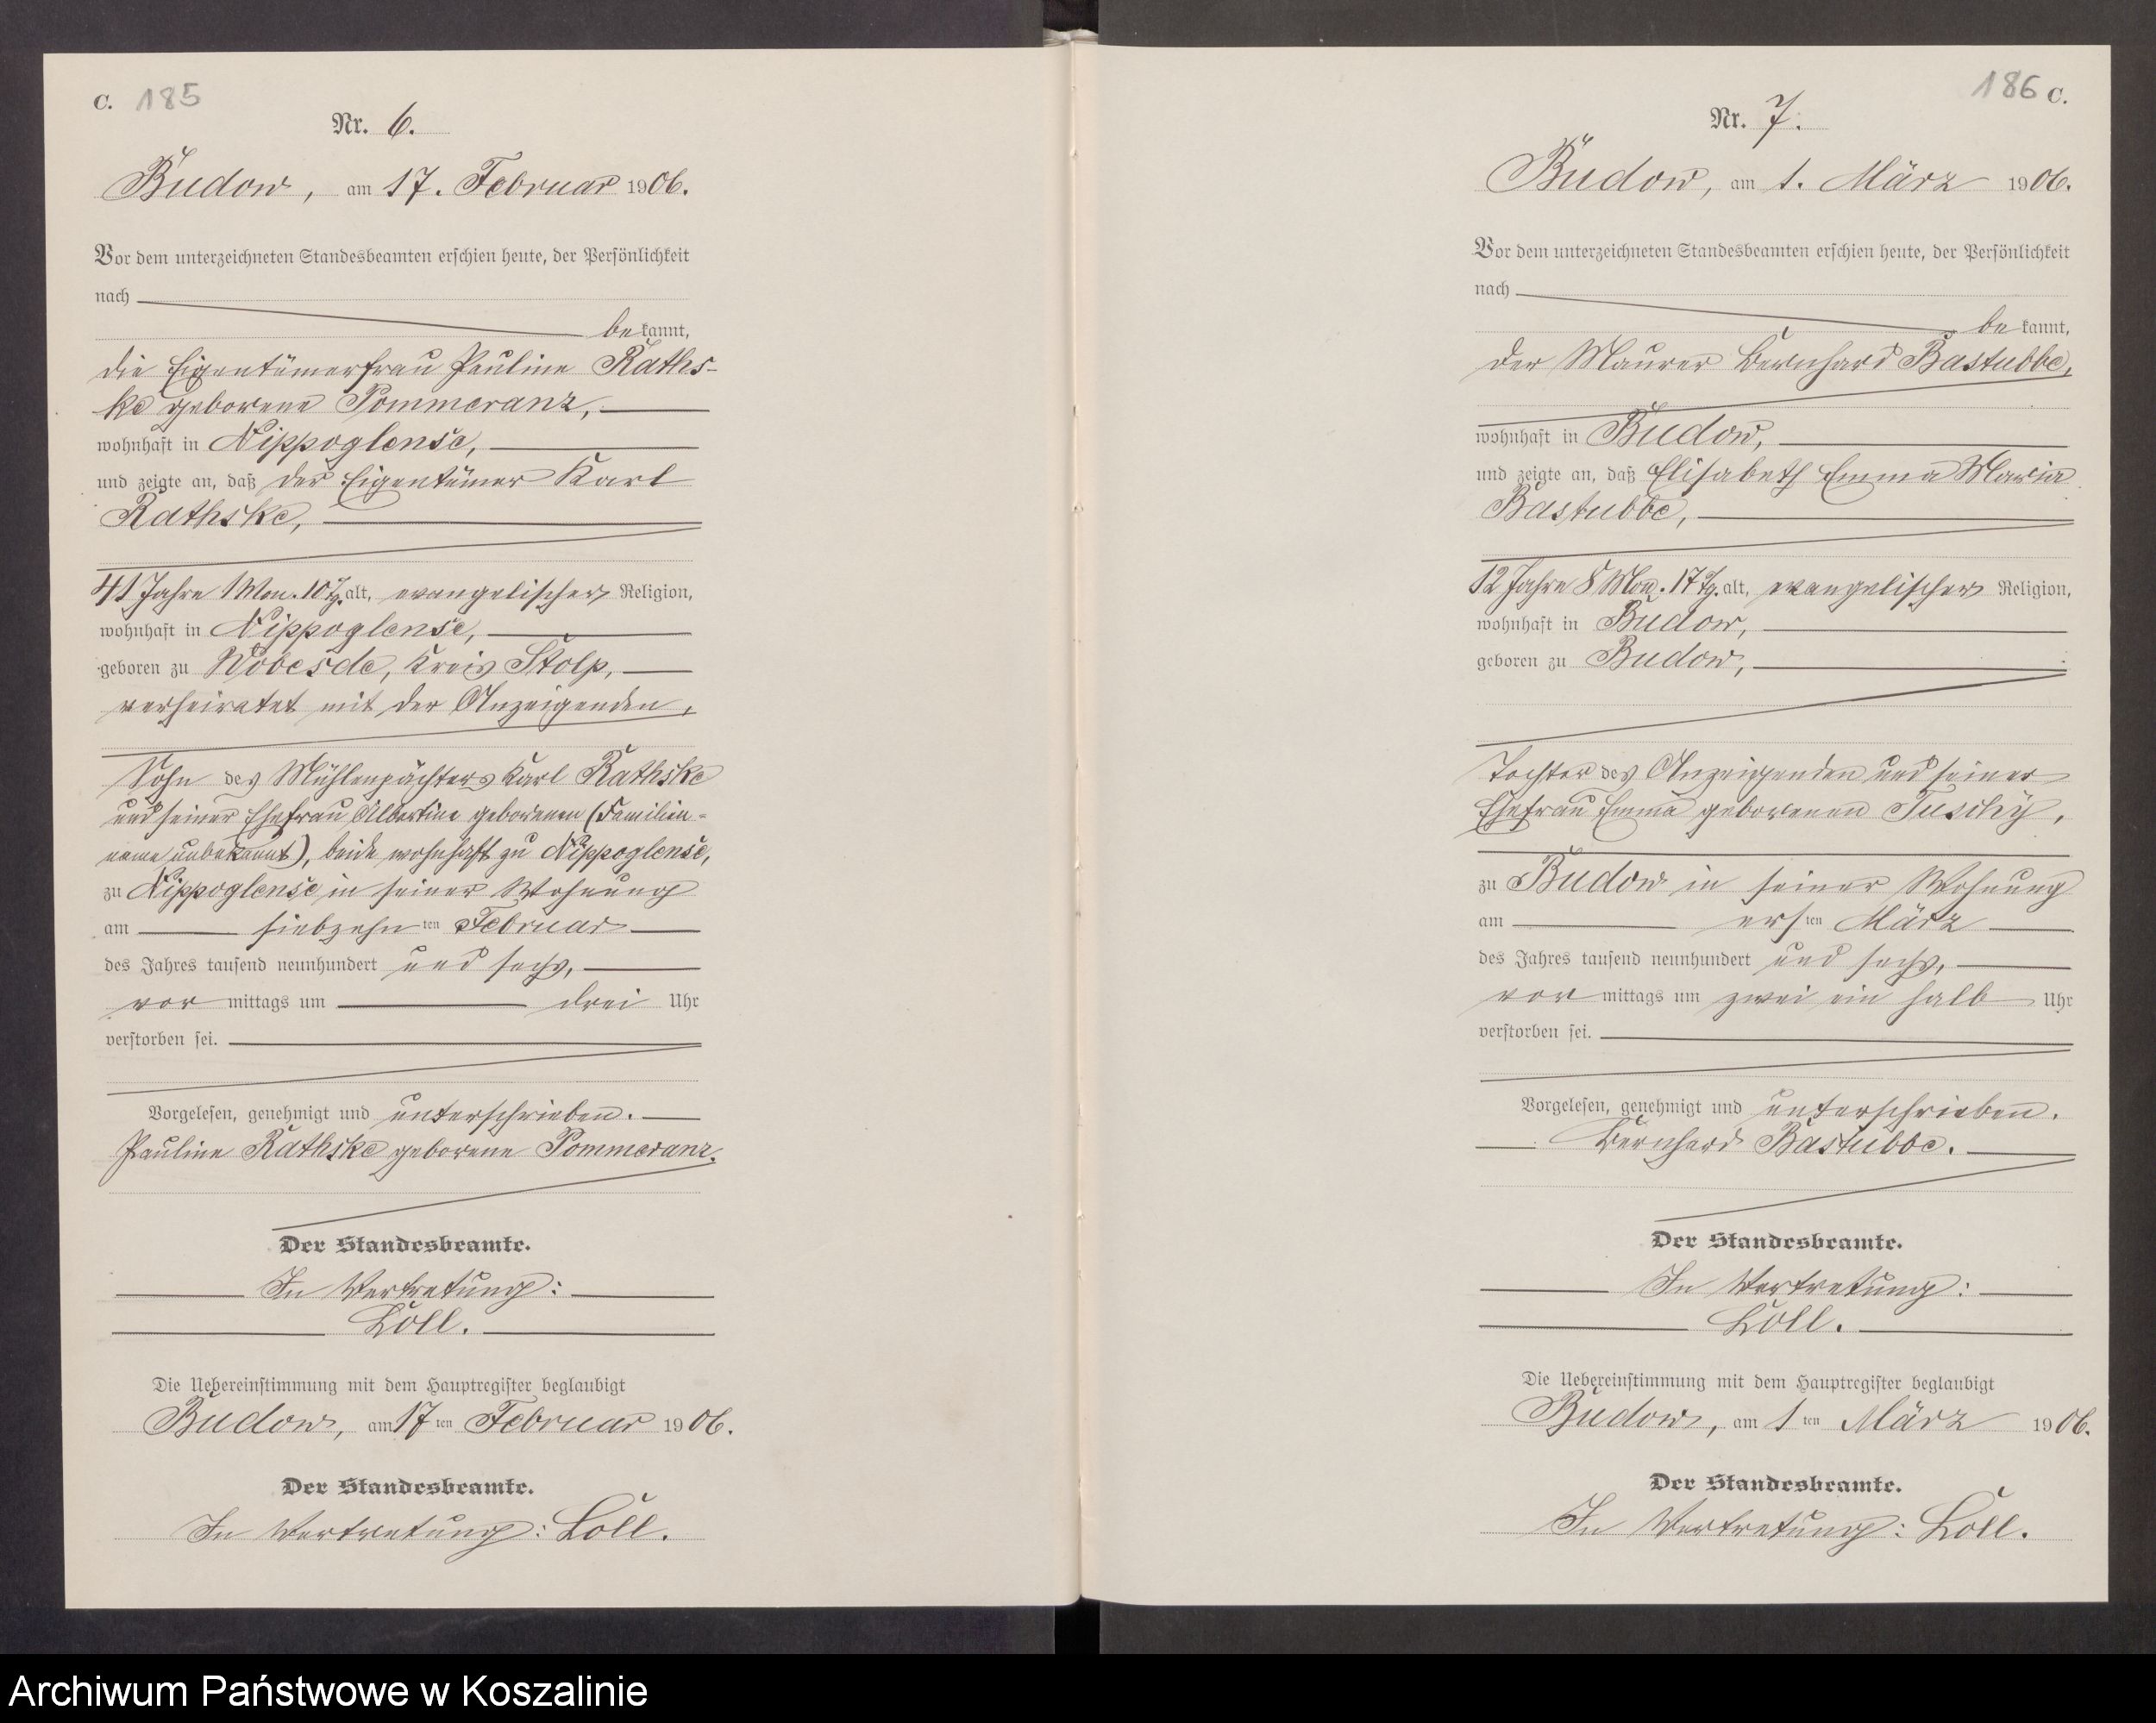 C. 185
Nr. 6.
Budow, am 17. Februar 1906.
Vor dem unterzeichneten Standesbeamten erschien heute, der Persönlichkeit
nach
be kannt,
die Eigentümerfrau Pauline Raths-
ke geborene Pommeranz,
wohnhaft in Nippoglense,
und zeigte an, daß der Eigentümer Karl
Rathske,
41 Jahre 1 Mon. 10 Tg. alt, evangelischer Religion,
wohnhaft in Nippoglense,
geboren zu Wobesde, Kreis Stolp,
verheiratet mit der Anzeigenden,
Sohn des Mühlenpächters Karl Rathske
und seiner Ehefrau Albertine geborenen (Familien-
name unbekannt), beide wohnhaft zu Nippoglense,
zu Nippoglense in seiner Wohnung
am siebzehn ten Februar
des Jahres tausend neunhundert und sechs,
vor mittags um drei Uhr
verstorben sei.
Vorgelesen, genehmigt und unterschrieben.
Pauline Rathske geborene Pommeranz.
Der Standesbeamte.
In Vertretung:
Löll.
Die Uebereinstimmung mit dem Hauptregister beglaubigt
Budow, am 17 ten Februar 1906.
Der Standesbeamte.
In Vertretung: Löll.
186 C.
Nr. 7.
Budow, am 1. März 1906.
Vor dem unterzeichneten Standesbeamten erschien heute, der Persönlichkeit
nach
be kannt,
der Maurer Bernhard Bastubbe,
wohnhaft in Budow,
und zeigte an, daß Elisabeth Emma Maria
Bastubbe,
12 Jahre 8 Mon. 17 Tg. alt, evangelischer Religion,
wohnhaft in Budow,
geboren zu Budow,
Tochter des Anzeigenden und seiner
Ehefrau Emma geborenen Tuschy,
zu Budow in seiner Wohnung
am ers ten März
des Jahres tausend neunhundert und sechs,
vor mittags um zwei ein halb Uhr
verstorben sei.
Vorgelesen, genehmigt und unterschrieben.
Bernhard Bastubbe.
Der Standesbeamte.
In Vertretung:
Löll.
Die Uebereinstimmung mit dem Hauptregister beglaubigt
Budow, am 1 ten März 1906.
Der Standesbeamte.
In Vertretung: Löll.
Archiwum Państwowe w Koszalinie